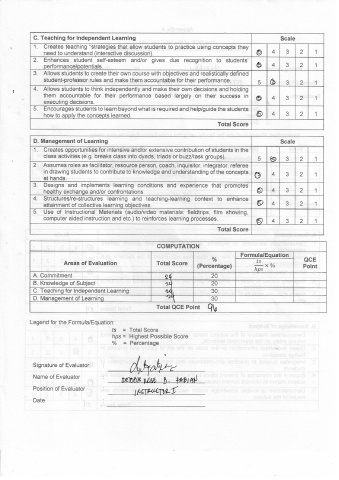 C. Teaching for Independent Learning Scale
1. Creates teaching strategies that allow students to practice using concepts they need to understand (interactive discussion). 5 4 3 2 1
2. Enhances student self-esteem and/or gives due recognition to students' performance/potentials. 5 4 3 2 1
3. Allows students to create their own course with objectives and realistically defined student-professor rules and make them accountable for their performance. 5 4 3 2 1
4. Allows students to think independently and make their own decisions and holding them accountable for their performance based largely on their success in executing decisions. 5 4 3 2 1
5. Encourages students to learn beyond what is required and help/guide the students how to apply the concepts learned. 5 4 3 2 1
Total Score
D. Management of Learning Scale
1. Creates opportunities for intensive and/or extensive contribution of students in the class activities (e.g. breaks class into dyads, triads or buzz/task groups). 5 4 3 2 1
2. Assumes roles as facilitator, resource person, coach, inquisitor, integrator, referee in drawing students to contribute to knowledge and understanding of the concepts at hands. 5 4 3 2 1
3. Designs and implements learning conditions and experience that promotes healthy exchange and/or confrontations 5 4 3 2 1
4. Structures/re-structures learning and teaching-learning context to enhance attainment of collective learning objectives. 5 4 3 2 1
5. Use of Instructional Materials (audio/video materials: fieldtrips, film showing, computer aided instruction and etc.) to reinforces learning processes. 5 4 3 2 1
Total Score
COMPUTATION
Areas of Evaluation Total Score % (Percentage) Formula/Equation ts/hps x % QCE Point
A. Commitment 24 20
B. Knowledge of Subject 24 20
C. Teaching for Independent Learning 24 30
D. Management of Learning 24 30
Total QCE Point 96
Legend for the Formula/Equation:
ts = Total Score
hps = Highest Possible Score
% = Percentage
Signature of Evaluator:
Name of Evaluator D. FABIAN
Position of Evaluator INSTRUCTOR I
Date